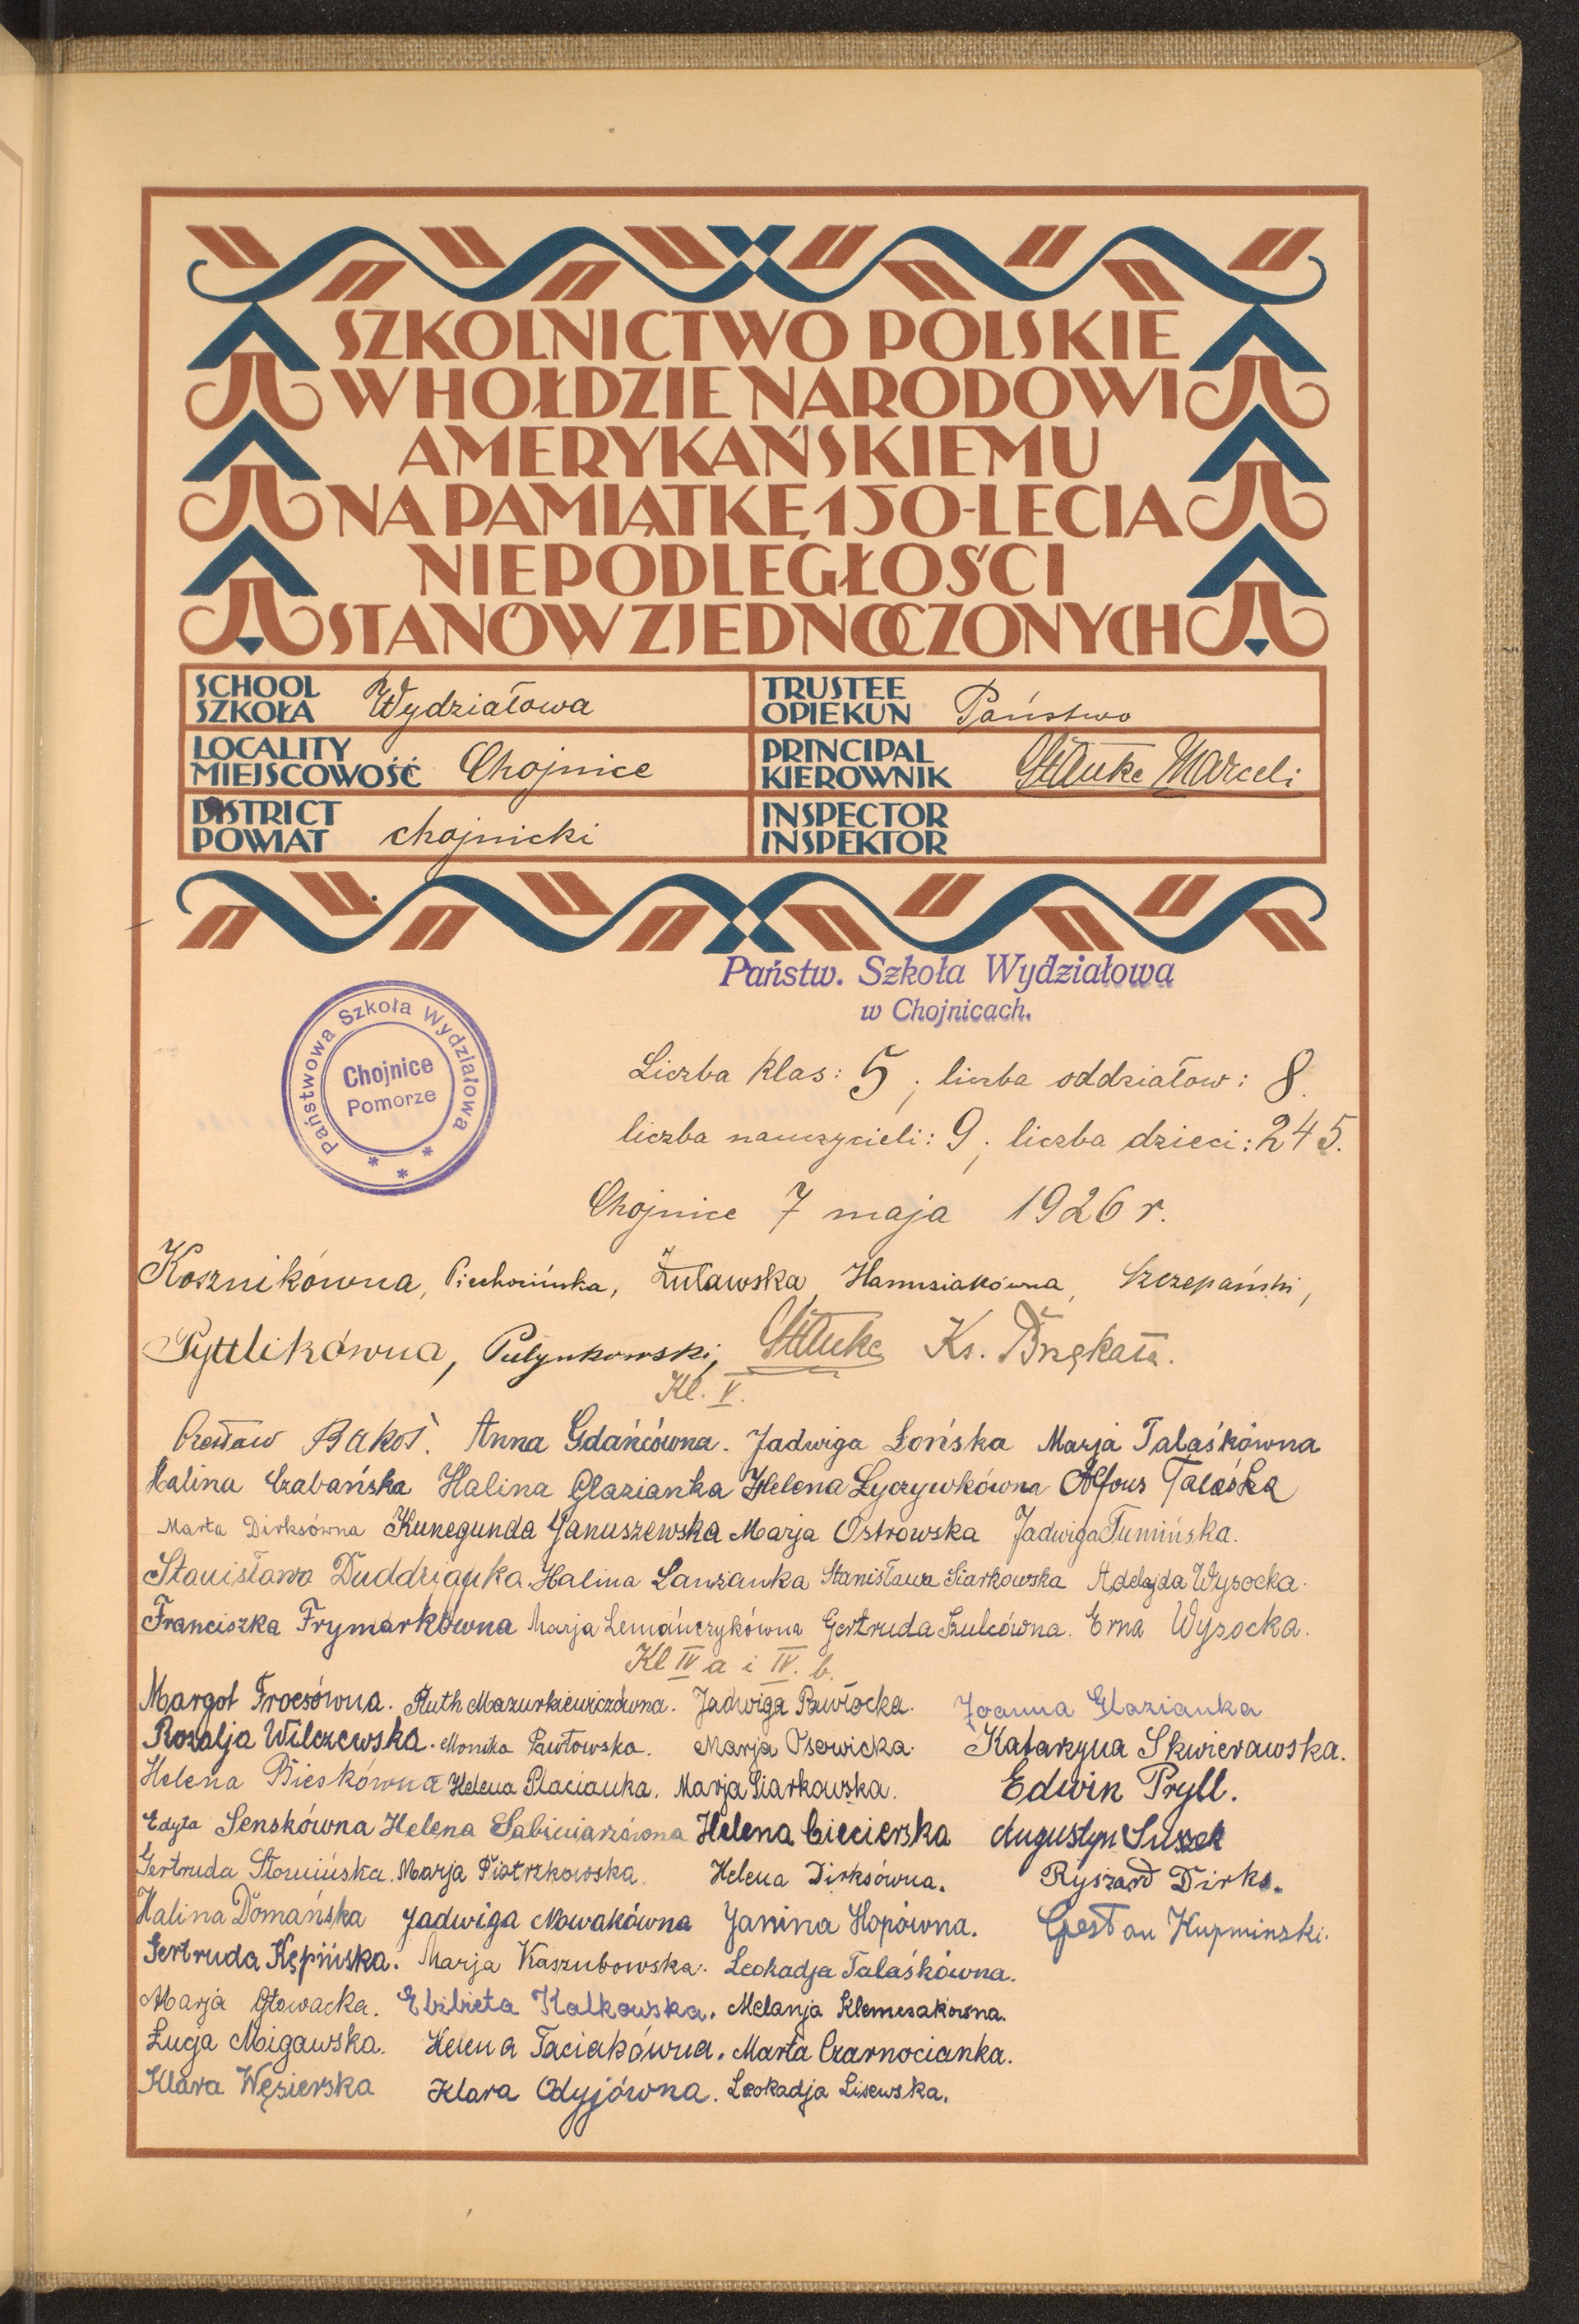 SZKOLNICTWO POLSKIE
W HOŁDZIE NARODOWI
AMERYKAŃSKIEMU
NA PAMIĄTKĘ 150-LECIA
NIEPODLEGŁOŚCI
STANÓW ZJEDNOCZONYCH
SCHOOL
SZKOŁA Wydziałowa
TRUSTEE
OPIEKUN Państwo
LOCALITY
MIEJSCOWOŚĆ Chojnice
PRINCIPAL
KIEROWNIK Sttuke Marceli
DISTRICT
POWIAT chojnicki
INSPECTOR
INSPEKTOR
Państw. Szkoła Wydziałowa
w Chojnicach.
Państwowa Szkoła Wydziałowa
Chojnice
Pomorze
Liczba klas: 5; liczba oddziałów: 8.
liczba nauczycieli: 9; liczba dzieci: 245.
Chojnice 7 maja 1926 r.
Kosznikówna, Piechocińska, Żuławska, Hanusiakówna, Szczepański,
Pyttlikówna, Sttuke Ks.
Kl. V.
Czesław Bakoś. Anna Gdańcówna. Jadwiga Łońska Marja Talaśkówna
Halina Czabańska Halina Glazianka Helena Łyczywkówna Alfons Talaśka
Marta Dirksówna Kunegunda Januszewska Marja Ostrowska Jadwiga Tumińska.
Stanisława Halina Lanzanka Stanisława Siarkowska Adelajda Wysocka.
Franciszka Frymarkówna Marja Lemańczykówna Gertruda Szulcówna. Erna Wysocka.
Kl IV a i IV. b.
Margot Frocsówna. Ruth Mazurkiewiczówna. Jadwiga Pawłocka. Joanna Glazianka
Rozalja Wilczewska. Monika Pawłowska. Marja Osowicka. Katarzyna Skwierawska.
Helena Bieskówna Helena Placianka. Marja Siarkowska. Edwin Pryll.
Edyta Senskówna Helena Sabiniarzówna Helena Ciecierska Augustyn Suszek
Gertruda Słomińska. Marja Piotrzkowska. Helena Dirksówna. Ryszard Dirks.
Halina Domańska Jadwiga Nowakówna Janina Hopówna. Czesław Kupminski.
Gertruda Kępińska. Marja Kaszubowska. Leokadja Talaśkówna.
Marja Głowacka. Elżbieta Kalkowska. Melanja Klemczakówna.
Łucja Migawska. Helena Taciakówna. Marta Czarnocianka.
Klara Węsierska Klara Odyjówna. Leokadja Lisewska.